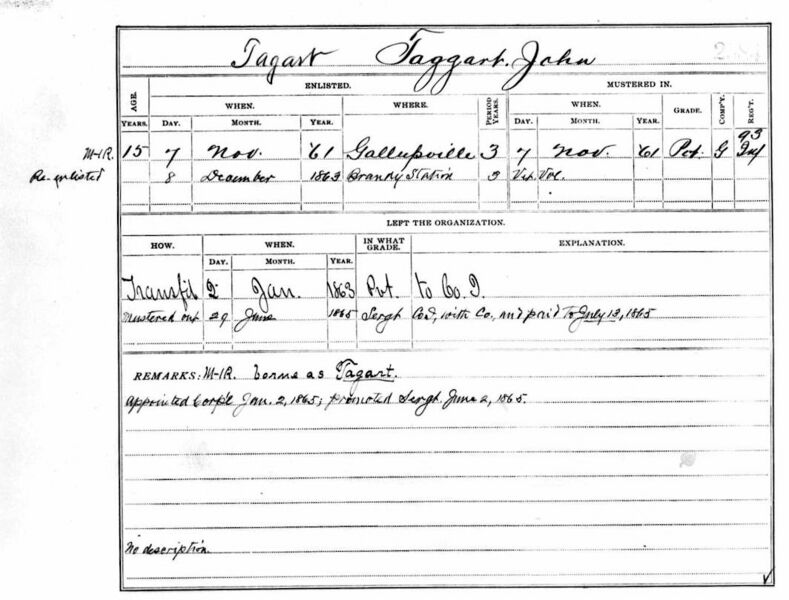 Tagart Taggart. John
AGE. ENLISTED. MUSTERED IN.
WHEN. WHERE. PERIOD YEARS. WHEN. GRADE. COMP'Y. REG'T.
YEARS. DAY. MONTH. YEAR. DAY. MONTH. YEAR.
M-IR. 15 7 Nov. '61 Gallupville 3 7 Nov. '61 Pvt. G 93 Inf
Re-enlisted 8 December 1863 Brandy Station 3 Vet. Vol.
LEFT THE ORGANIZATION.
HOW. WHEN. IN WHAT GRADE. EXPLANATION.
DAY. MONTH. YEAR.
Transf'd 2 Jan. 1863 Pvt. to Co. I.
Mustered out 29 June 1865 Sergt Co. I, with Co., and paid to July 13, 1865
REMARKS: M-IR. borne as Tagart.
Appointed Corp'l Jan. 2, 1865; promoted Sergt. June 2, 1865.
No description.